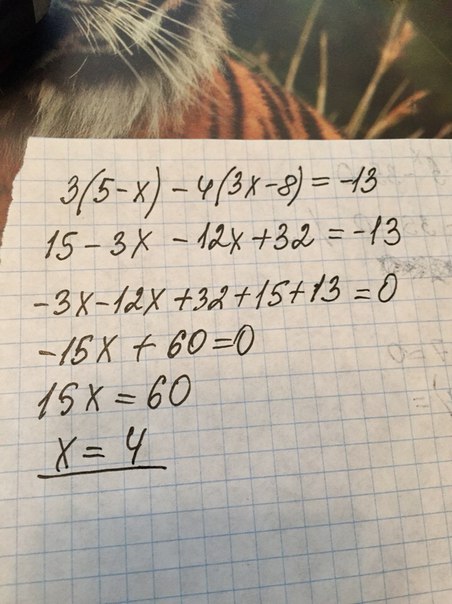 3(5-x)-4(3x-8)=-13
15-3x-12x+32=-13
-3x-12x+32+15+13=0
-15x+60=0
15x=60
x=4